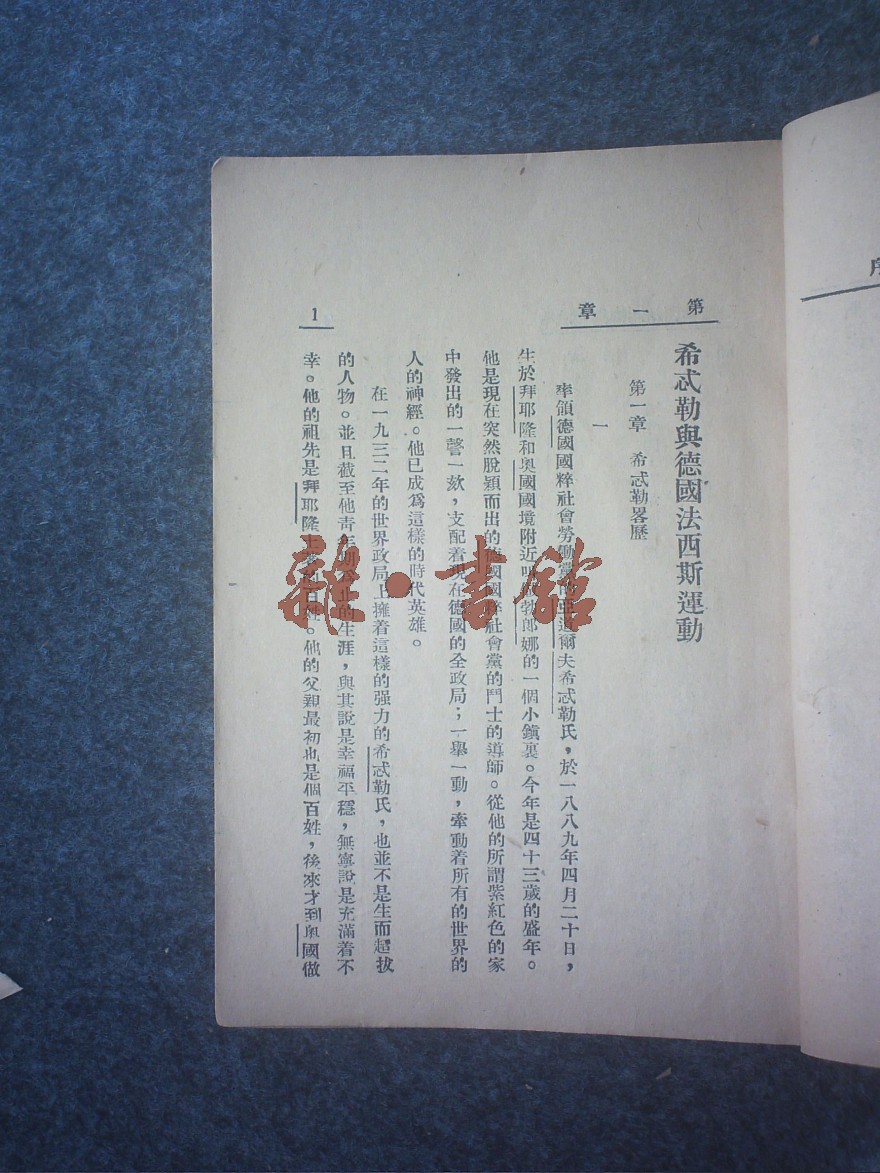 序
第一章
希忒勒與德國法西斯運動
第一章　希忒勒畧歷
一
率領德國國粹社會勞働黨的亞道爾夫希忒勒氏，於一八八九年四月二十日，
生於拜耶隆和奧國國境附近叫做勃郎娜的一個小鎮裏。今年是四十三歲的盛年。
他是現在突然脫穎而出的德國國粹社會黨的鬥士的導師。從他的所謂紫紅色的家
中發出的一聲一欬，支配着現在德國的全政局；一舉一動，牽動着所有的世界的
人的神經。他已成爲這樣的時代英雄。
在一九三二年的世界政局上擁着這樣的强力的希忒勒氏，也並不是生而超拔
的人物。並且截至他青年期爲止的生涯，與其說是幸福平穩，無寧說是充滿着不
幸。他的祖先是拜耶隆土著的百姓。他的父親最初也是個百姓，後來才到奧國做
1
雜·書館